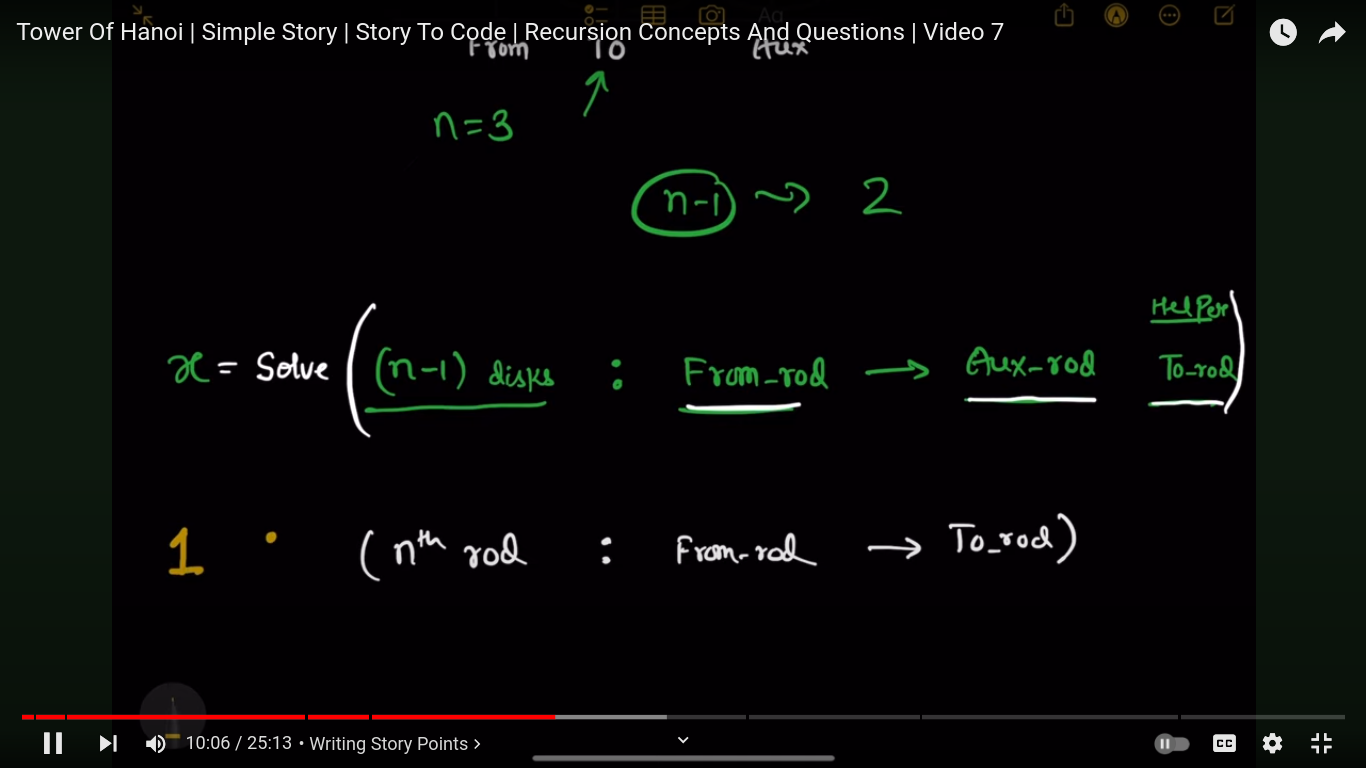 Tower Of Hanoi | Simple Story | Story To Code | Recursion Concepts And Questions | Video 7
Aa
From To Aux
n=3
n-1 ⤳ 2
Helper
x = Solve ( (n-1) disks : From_rod → Aux-rod To-rod )
1 • ( nth rod : From-rod → To_rod )
10:06 / 25:13 • Writing Story Points >
CC